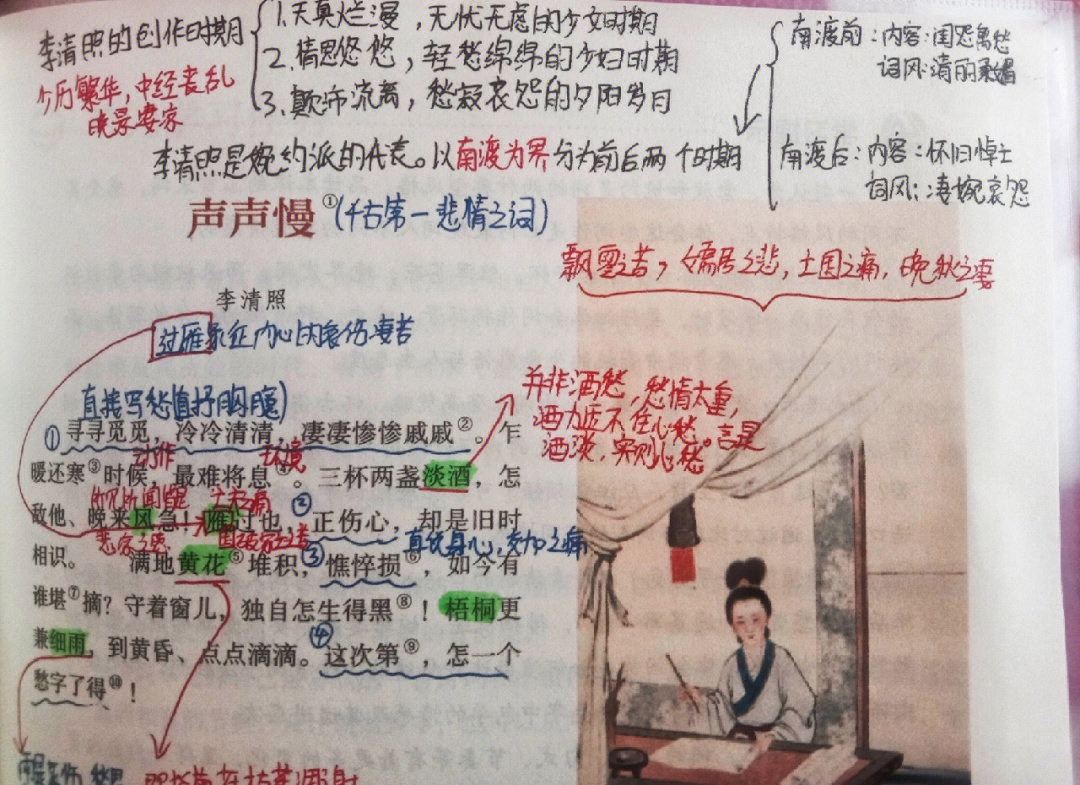 李清照的创作时期
1.天真烂漫，无忧无虑的少女时期
2.情思悠悠，轻愁绵绵的少妇时期
3.颠沛流离，愁寂哀怨的夕阳岁月
少历繁华，中经丧乱
晚景凄凉
南渡前：内容：闺怨离愁
词风：清丽柔媚
南渡后：内容：怀旧悼亡
词风：凄婉哀怨
李清照是婉约派的代表。以南渡为界分为前后两个时期
声声慢①(千古第一悲情之词)
飘零之苦，孀居之悲，亡国之痛，晚秋之凄
李清照
过雁象征内心的哀伤凄苦
直接写愁直抒胸臆)
并非酒愁，愁情太重，
酒力压不住心愁。言是
酒淡，实则心愁
①寻寻觅觅，冷冷清清，凄凄惨惨戚戚②。乍
动作 环境
暖还寒③时候，最难将息④。三杯两盏淡酒，怎
亡夫之痛
敌他、晚来风急！雁过也，②正伤心，却是旧时
相识。 满地黄花⑤堆积，③憔悴损⑥，如今有
谁堪⑦摘？守着窗儿，独自怎生得黑⑧！梧桐更
兼细雨，到黄昏、点点滴滴。④这次第⑨，怎一个
愁字了得⑩！